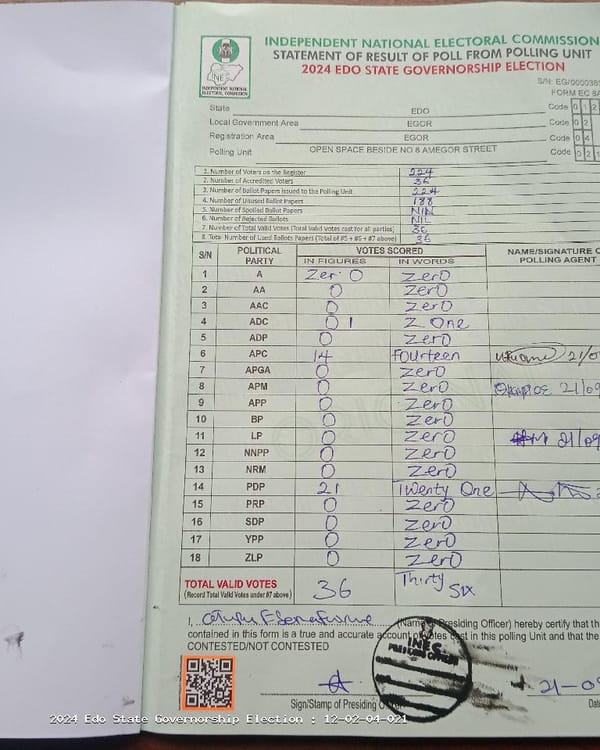 INDEPENDENT NATIONAL ELECTORAL COMMISSION
STATEMENT OF RESULT OF POLL FROM POLLING UNIT
2024 EDO STATE GOVERNORSHIP ELECTION
S/N: EG/000038
FORM EC 8A
INEC
INDEPENDENT NATIONAL ELECTORAL COMMISSION
State EDO Code 1 2
Local Government Area EGOR Code 0 2
Registration Area EGOR Code 0 4
Polling Unit OPEN SPACE BESIDE NO 8 AMEGOR STREET Code 0 2 1
1. Number of Voters on the Register 224
2. Number of Accredited Voters 36
3. Number of Ballot Papers Issued to the Polling Unit 224
4. Number of Unused Ballot Papers 188
5. Number of Spoiled Ballot Papers
6. Number of Rejected Ballots NIL
7. Number of Total Valid Votes (Total Valid Votes cast for all parties) 36
8. Total Number of Used Ballots Papers (Total of #5 + #6 + #7 above) 36
S/N POLITICAL PARTY VOTES SCORED NAME/SIGNATURE O POLLING AGENT
IN FIGURES IN WORDS
1 A Zer 0 Zero
2 AA 0 Zero
3 AAC 0 Zero
4 ADC 0 1 Z One
5 ADP 0 Zero
6 APC 14 Fourteen 21/0
7 APGA 0 Zero
8 APM 0 Zero 21/09
9 APP 0 Zero
10 BP 0 Zero
11 LP 0 Zero 21/09
12 NNPP 0 Zero
13 NRM 0 Zero
14 PDP 21 Twenty One
15 PRP 0 Zero
16 SDP 0 Zero
17 YPP 0 Zero
18 ZLP 0 Zero
TOTAL VALID VOTES 36 Thirty Six
(Record Total Valid Votes under #7 above)
I, (Name of Presiding Officer) hereby certify that th
contained in this form is a true and accurate account of votes cast in this polling Unit and that the
CONTESTED/NOT CONTESTED
INEC
PRESIDING OFFICER
21-09
Sign/Stamp of Presiding Date
2024 Edo State Governorship Election : 12-02-04-021